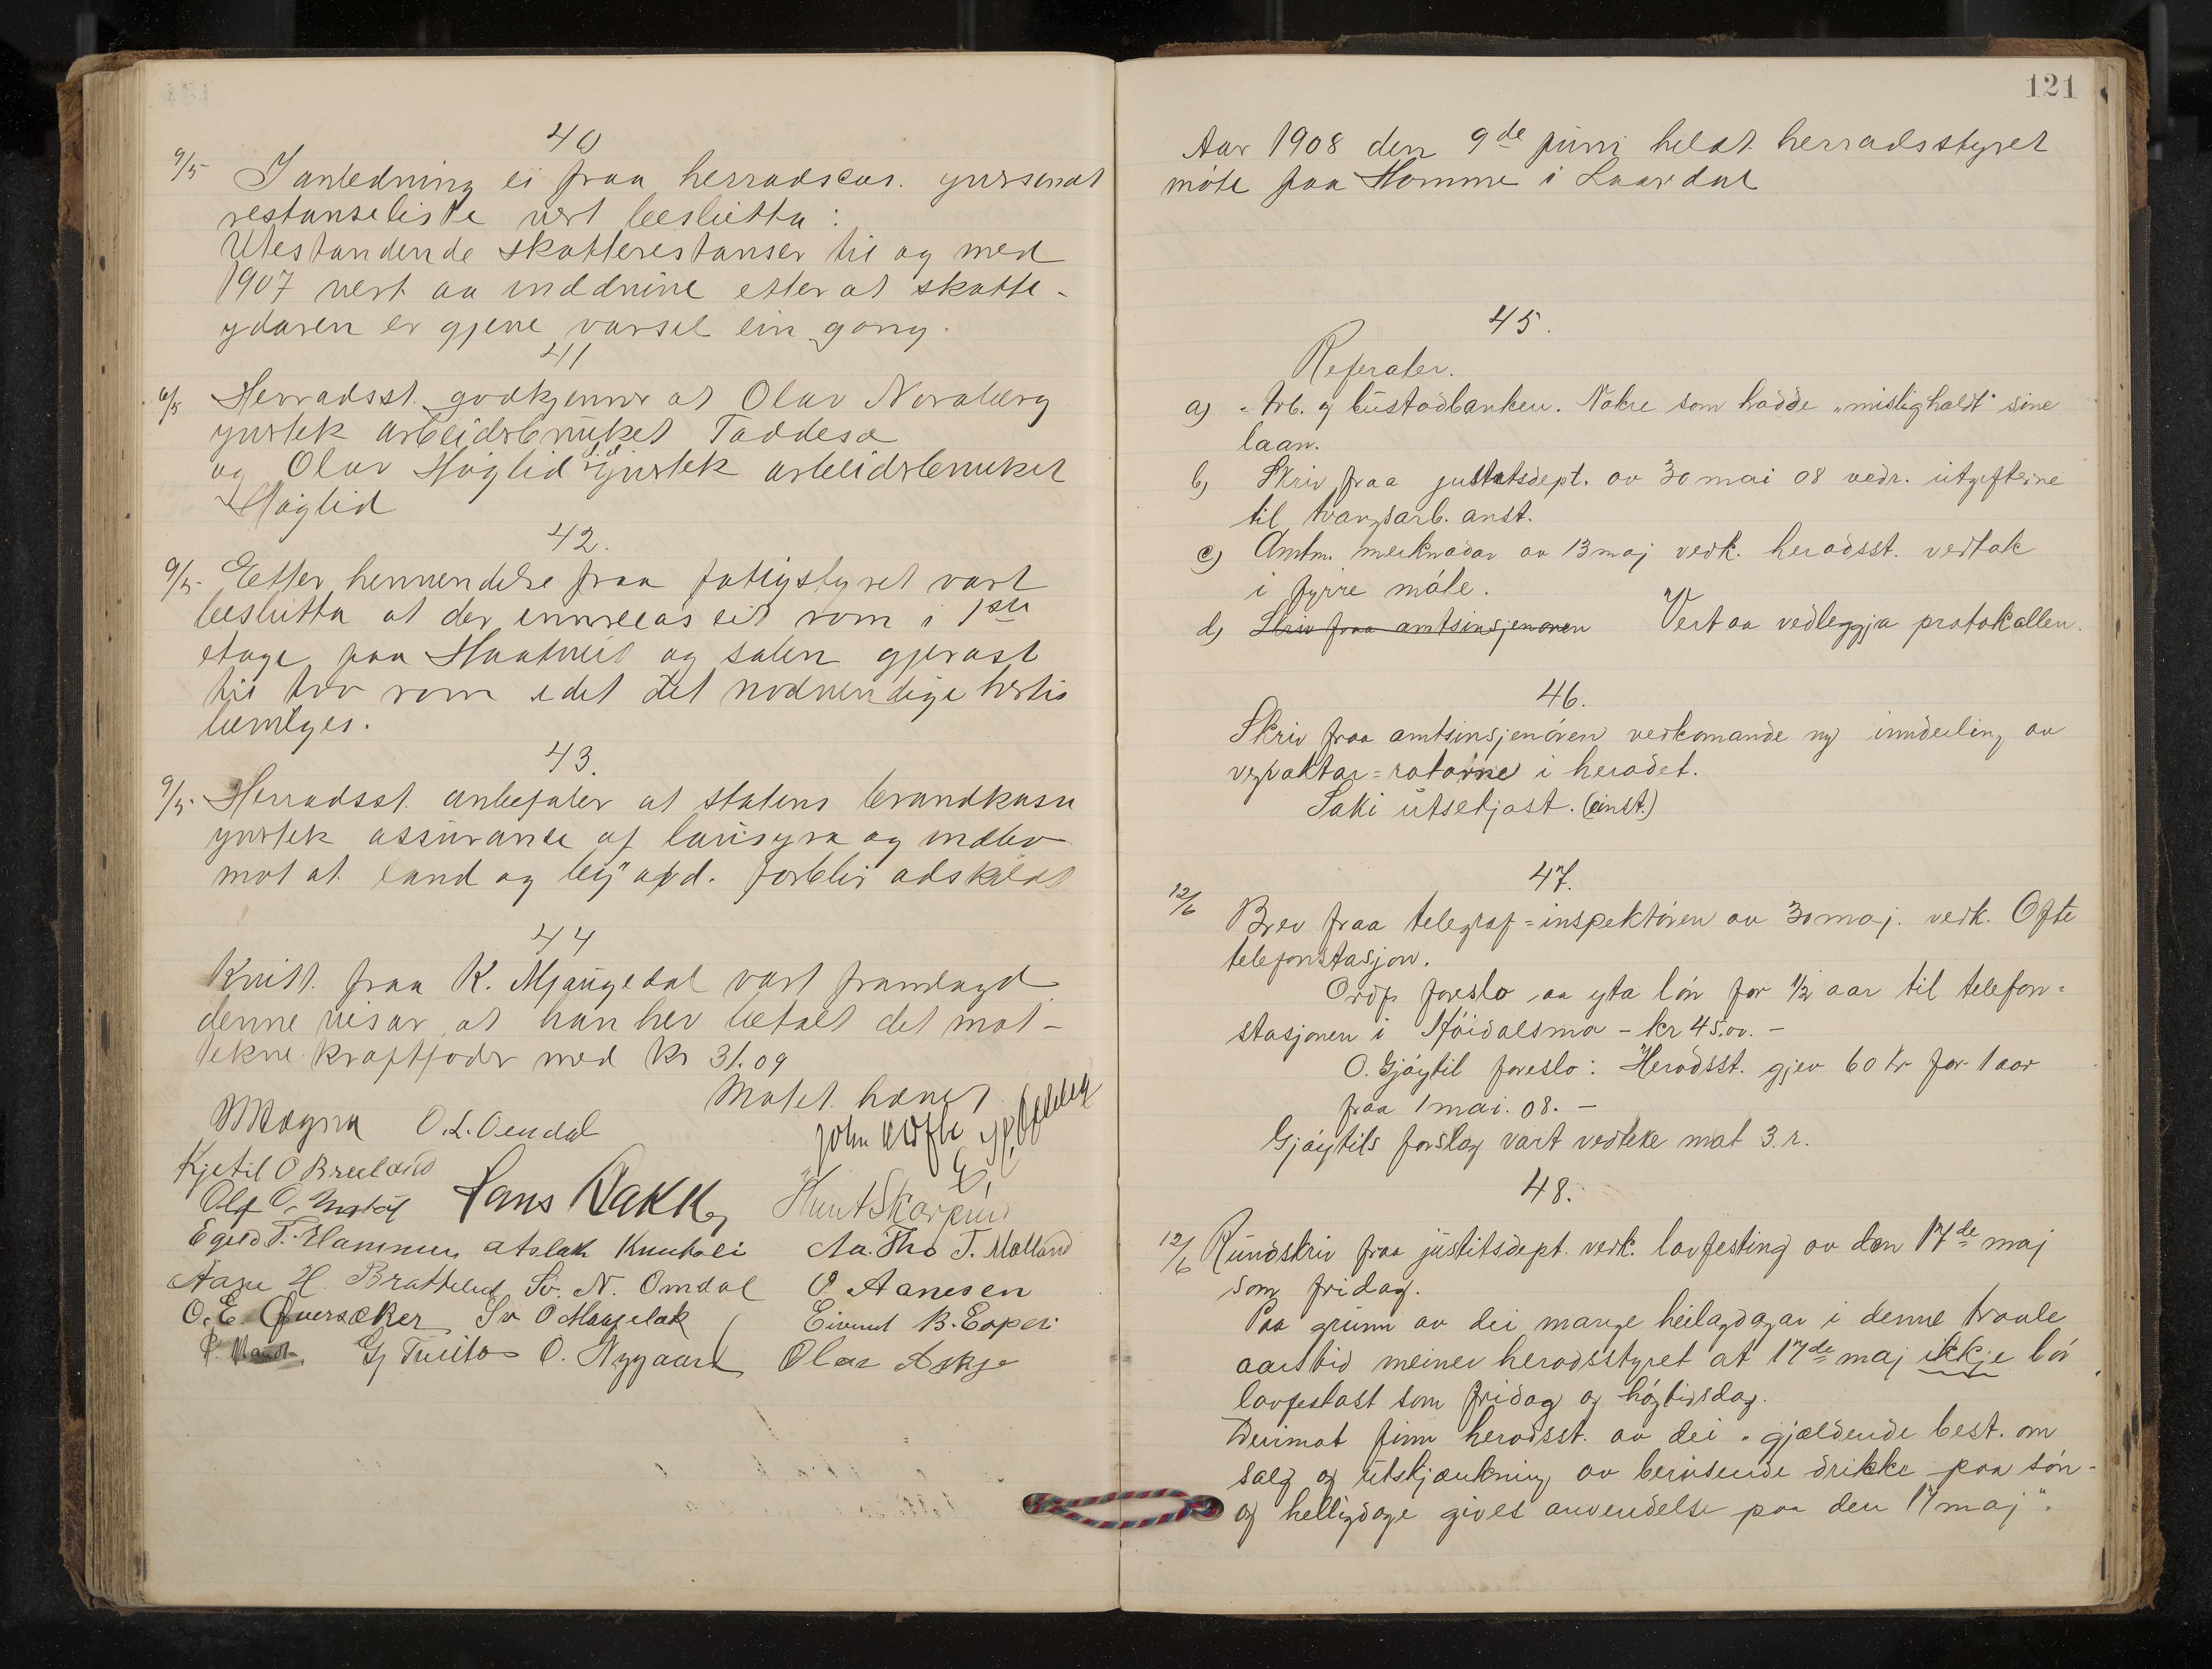 40
9/5 I anledning ei fraa herradscas. 
restanseliste vert beslutta:
Utestandende skatterestanser til og med
1907 vert aa inddrive etter at skatte-
ydaren er gjeve varsel ein gong.
41
6/5 Herradsst. godkjenner at Olav Norabærg
yvertek arbeidsbruket Taddesø
og Olav Høglid yvertek arbeidsbruket
Høglid
42.
9/5 Eetter henvendelse fraa fattigstyret vart
beslutta at der innreias eit rom i 1ste
etage paa Haatveit og salen gjerast
til tvo rom idet det nodvendige 
bevilges.
43.
9/5 Herradsst. anbefaler at statens brandkasse
yvertek assurance af lausøyra og indbo
mot at land og by avd. forblir adskildt
44
Kvitt. fraa K. Mjaugedal vart framlagd
denne visar at han hev betalt det mot-
tekne kraftfoder med kr 31.09
Møtet hævet
O. L. Omdal
John Ofte
Kjetil O Breiland
Hans Rakke Knut Skarprud
Egild T. Hammer Aslak Knutsli Aa. Tho T. Molland
Aasu H. Brattelid Sv. N. Omdal O Aanesen
O. E. Qversøker Sv O Haugelak Eivind B. Eopei
Gj Tveito O. Nygaard Olav Askje
121
Aar 1908 den 9de juni heldt herradsstyret
møte paa Homme i Laardal
45.
Referater.
a) Arb. og bustadbanken. Nokre som hadde „misligholdt“ sine
laan.
b) Skriv fraa justitsdept. av 30 mai 08 vedr. utgifterne
til tvangsarb. anst.
c) Amtm. merknadar av 13 maj vedk. heradsst. vedtak
i fyrre møte.
d) Skriv fraa amtsinsjenøren Vert aa vedleggja protokollen.
46.
Skriv fraa amtsinsjenøren vedkomande ny inndeiling av
vegvaktar=rotarne i heradet.
Saki utsetjast. (einst.)
47.
12/6 Brev fraa telegraf=inspektøren av 30 maj. vedk. Ofte
telefonstasjon.
Ordf. foreslo aa yta løn for 1/2 aar til telefon=
stasjonen i Høidalsmo - kr 45.00. -
O. Gjøytil foreslo: Heradsst. gjev 60 kr for 1 aar
fraa 1 mai. 08. -
Gjøytils forslag vart vedteke mot 3. r.
48.
12/6 Rundskriv fraa justitsdept. vedk. lovfesting av den 17de maj
som fridag.
Paa grunn av dei mange heilagdagar i denne travle
aarstid meiner heradsstyret at 17de maj ikkje bør
lovfestast som fridag og høgtidsdag.
Derimot finn heradsst. av dei „gjældende best. om
salg og utskjænkning av berusende drikke paa søn-
og helligdage gives anvendelse paa den 17 maj“.